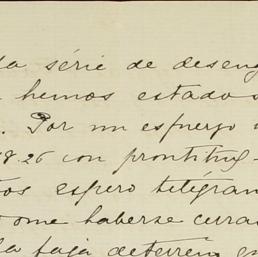 la série de deseng
hemos estado s
. Por un esfuerzo
18.26 con prontitu
os espero telégram
ome haberse cerra
la faja de terren